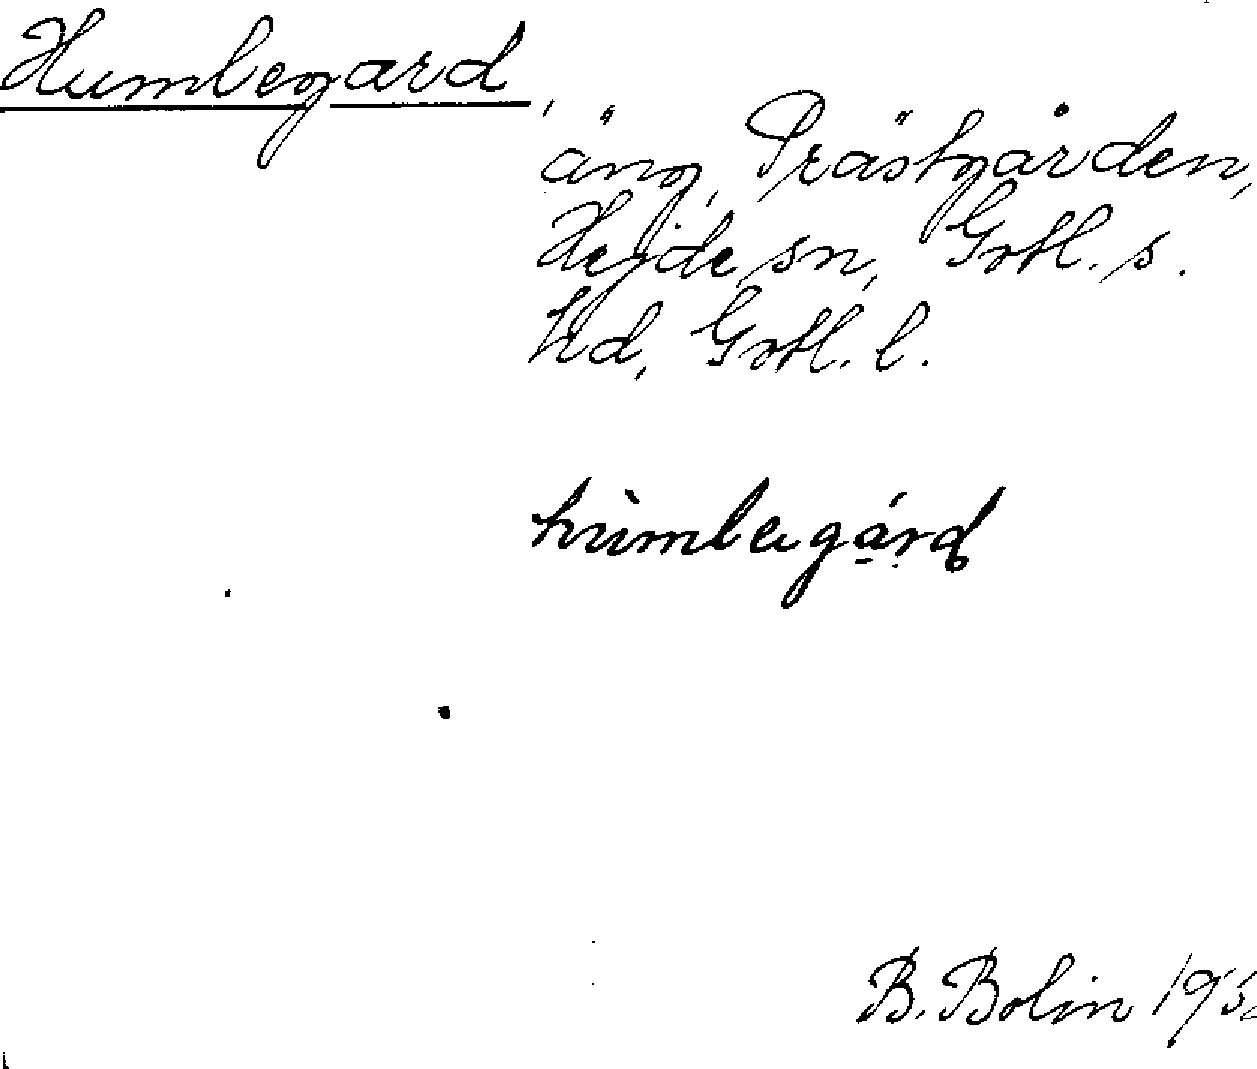 Humbegard,
äng, Prästgården,
Hejde sn, Gotl. s.
hd, Gotl. l.
hùmbegárd
B. Bolin